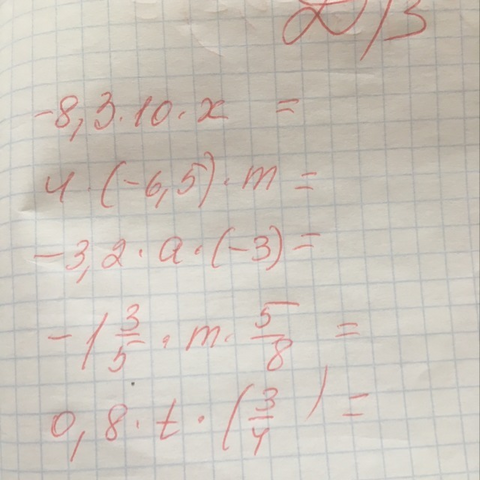 Д/З
-8,3·10·x =
4·(-6,5)·m =
-3,2·a·(-3) =
-1 3/5·m·5/8 =
0,8·t·(3/4) =